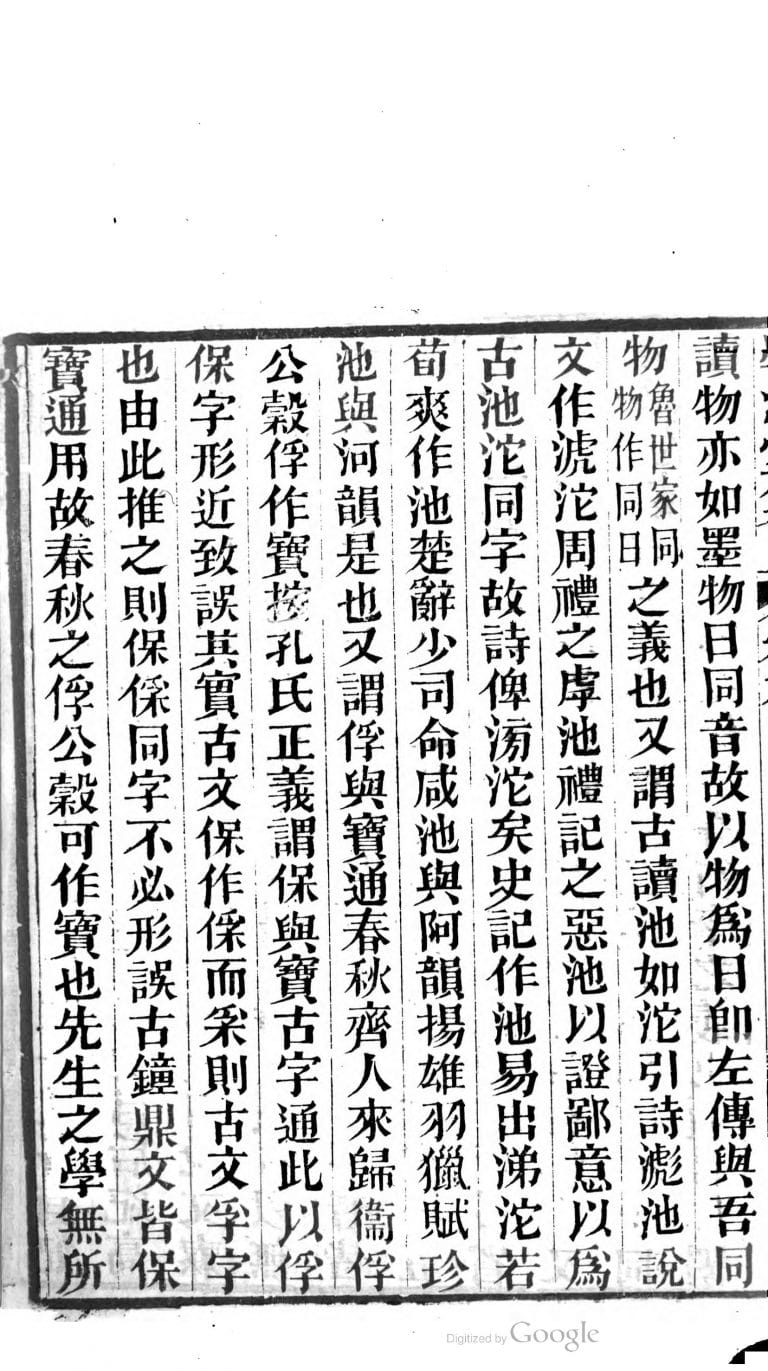 讀物亦如墨物日同音故以物爲日卽左傳與吾同
物魯世家同物作同日之義也又謂古讀池如沱引詩滮池說
文作淲沱周禮之虖池禮記之惡池以證鄙意以爲
古池沱同字故詩俾滂沱矣史記作池易出涕沱若
荀爽作池楚辭少司命咸池與阿韻揚雄羽獵賦珍
池與河韻是也又謂俘與寶通春秋齊人來歸衞俘
公穀俘作寶按孔氏正義謂保與寶古字通此以俘
保字形近致誤其實古文保作保而𤓽則古文孚字
也由此推之則保俘同字不必形誤古鐘鼎文皆保
寶通用故春秋之俘公穀可作寶也先生之學無所
Digitized by Google